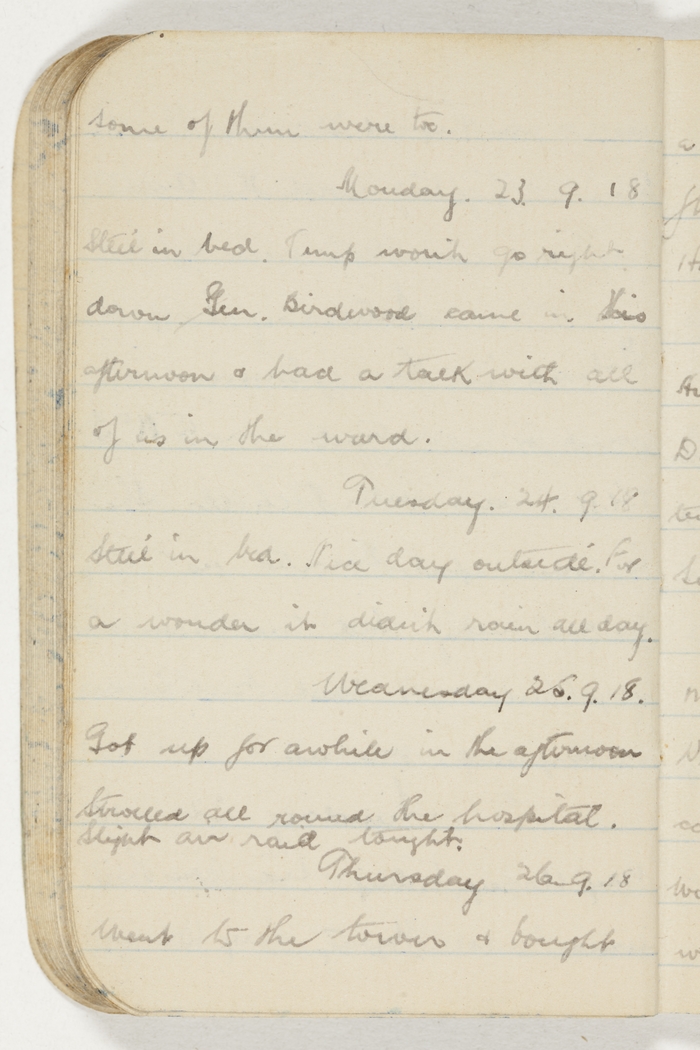 some of them were to.
Monday. 23. 9. 18
Still in bed. Temp won't go right
down Gen. Birdwood came in this
afternoon & had a talk with all
of us in the ward.
Tuesday. 24. 9. 18
Still in bed. Nice day outside. For
a wonder it didn't rain all day.
Wednesday 25. 9. 18.
Got up for awhile in the afternoon
Strolled all round the hospital.
Slight air raid tonight.
Thursday 26. 9. 18
Went to the town & bought